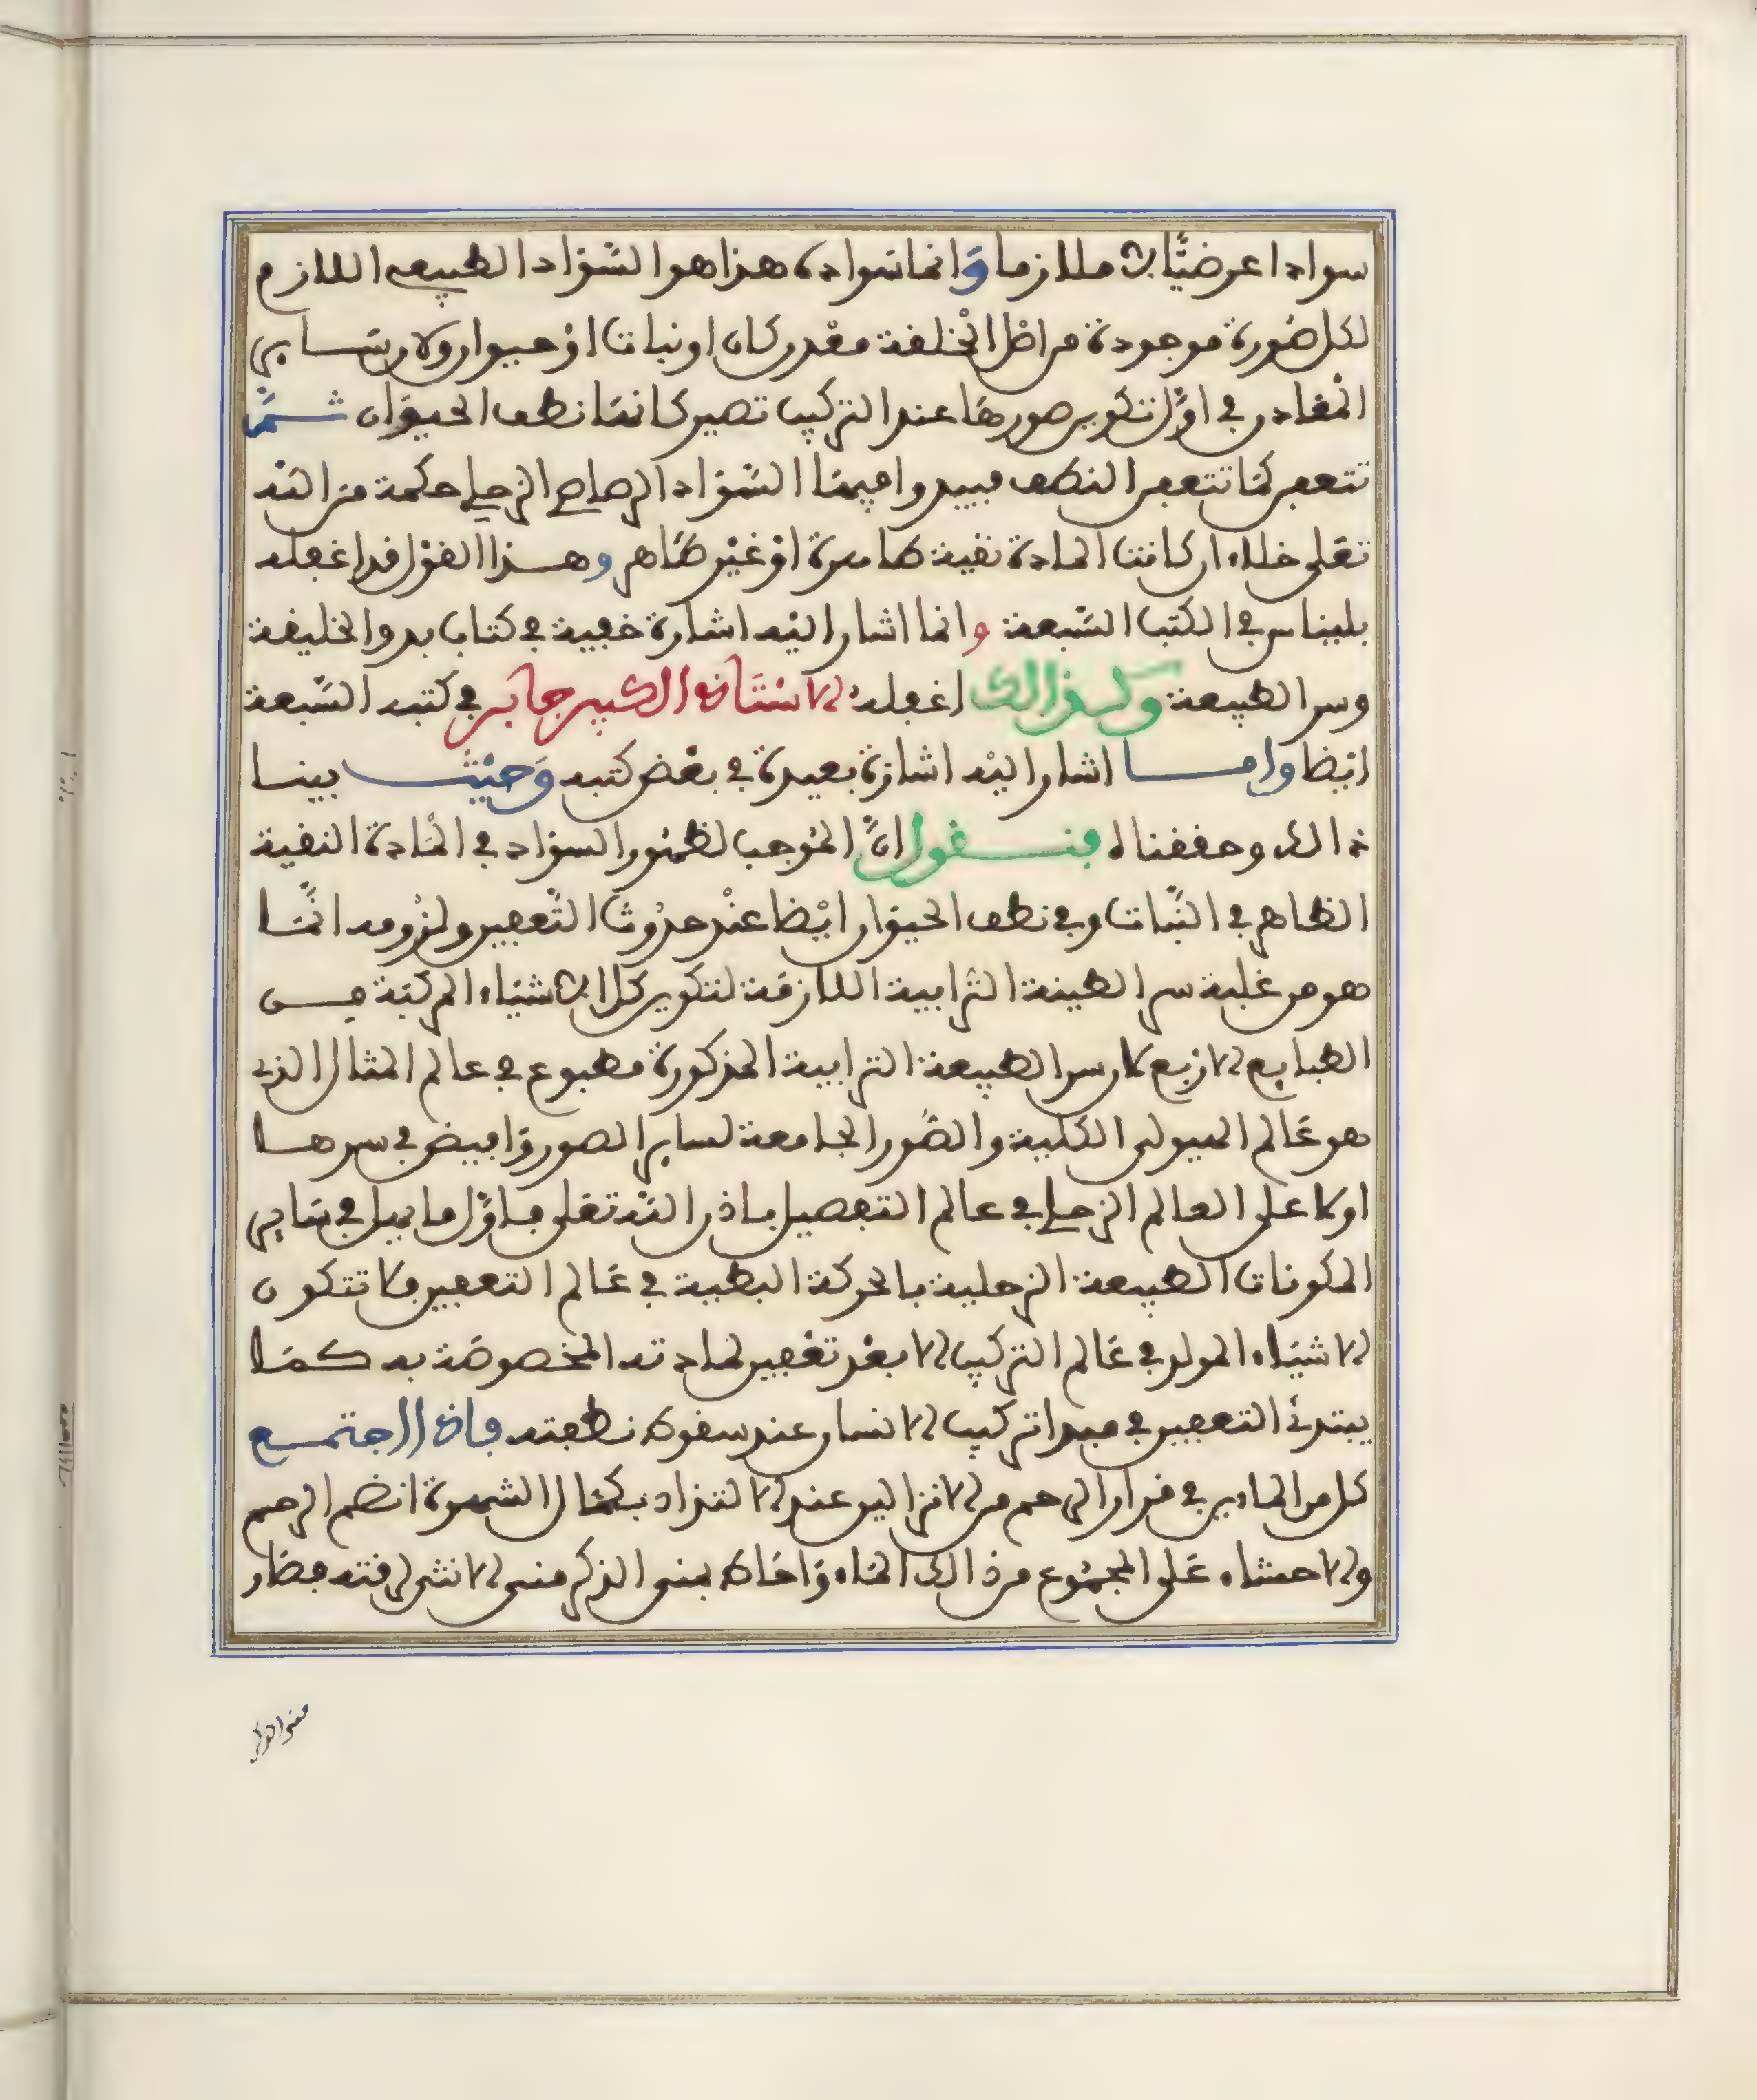 سوادا عرضيًّا لا ملازما وَانما سَواده هذا هو السَّوَاد الطبيعى اللازم
لكل صُورة موجودة من اصْل الخلقة معْدن كان او نبات اوْ حيوان ولان سَاير
المعَادن فى اوَّل تكوين صورهَا عند التركيب تصير كانهَا نطف الحيوَان ثمَّ
تتعفن كمَا تتعفن النطف فيبدوا فيهَا السَّوَاد الرصاصى الزحلى حكمة مَن الله
تعَلى خلاء ان كانت المادة نقية طاهرة اوْ غيْر طَاهر وهذا القوْل قد اغفله
بليناس فى الكتب السَّبعة وانما اشار اليْه اشارَة خفية فى كتاب بدو الخليقة
وسر الطبيعة وكذالك اغفله الاسْتَاذ الكبير جَابر فى كتبه السَّبعة
ايْضا وامَا اشار اليْه اشارَة بعيدة فى بعْض كتبه وَحيْث بينا
ذالك وحققناه فنقول انَّ الموْجب لظهُور السوَاد فى المَادة النقية
الظاهر فى النَّبات وفى نطف الحيوَان ايْضا عنْد حدُوث التَّعفين ولزُومه انَّمَا
هو من غلبة سر الطينة التُّرابية اللازمَة لتكوين كل الاشيَاء المركبَة مـن
الطبايع الارْبع لان سر الطبيعة الترابية المذكورَة مطبوع فى عالم المثال الذى
هو عَالم الهيولى الكلية والصُّور الجامعة لساير الصور وَافيض فى سرهـا
اولا على العالم الزحلى فى عالم التفصيل باذن الله تعَلى فاوَّل ما يبل فى سَاير
المكونات الطبيعة الزحلية بالحركة البطية فى عَالم التعفين فلا تتكون
الاشيَاء المولد فى عَالم التركيب الا بعْد تعْفين لمادته المخصوصَة به كمَا
يبتدئ التعفين فى مبدا تركيب الانسان عند سقوط نطفته فاذا اجتمـع
كل من المادين فى قرار الرحم من الانزالين عند الالتزاد بكمَال الشهوة انضم الرحم
والاحشاء عَلى المجمُوع من ذالك المَاء وَاحَاط بمنى الذكر منى الانثى لرقته فصَار
منى الذكر